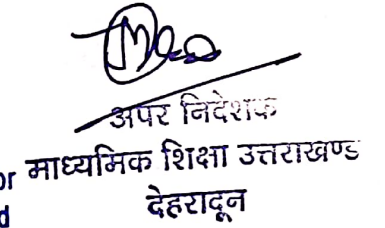 अपर निदेशक
or माध्यमिक शिक्षा उत्तराखण्ड
d देहरादून